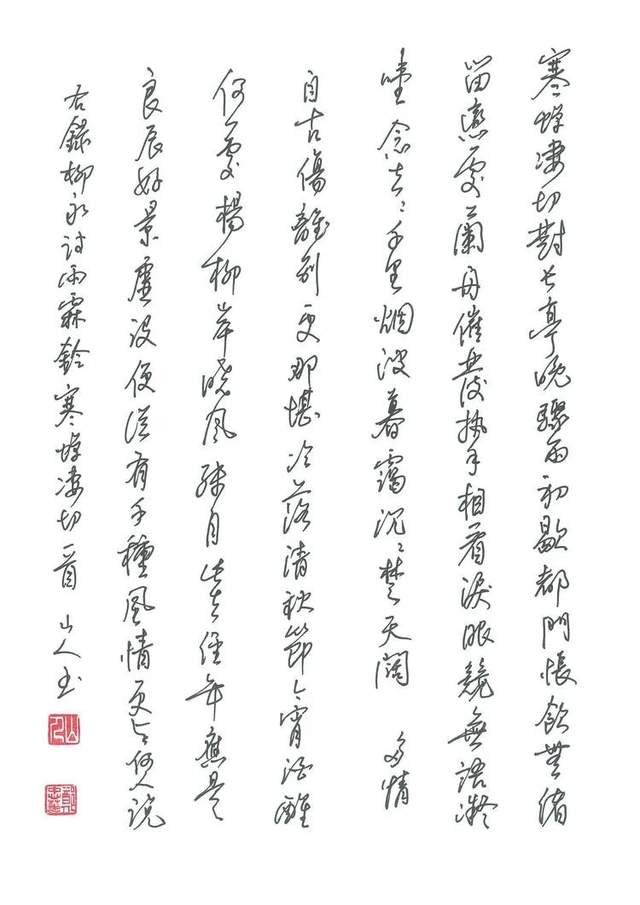 寒蟬凄切對長亭晚驟雨初歇都門悵飲無緒
留戀處蘭舟催發執手相看淚眼競無語凝
噎念去〻千里烟波暮靄沉〻楚天闊 多情
自古傷離别更那堪冷落清秋節今宵酒醒
何處楊柳岸曉風殘月此去經年應是
良辰好景虛設便從有千種風情更與何人說
右錄柳永詞雨霖鈴寒蟬凄切一首 山人書
山人